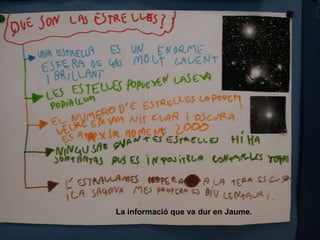 ¿QUE SON LAS ESTRELLES??
UNA ESTRELLA ES UN ENORME
ESFERA DE GAS MOLT CALENT
I BRILLANT
LES ESTELLES PODUEYEN LA SEVA
EL NUMERO D'E ESTRELLES LAPODEM
VEURE EM UNA NIT CLAR I OSCURA
ES A 2000
NINGU SAB QUANTES ESTRELLES HI HA
SON TANTAS QUE ES IMPOSIBLA CONTARLES TOTAS
L'ESTRALLA MES PROPERA A LA TERA ES EL SOL
I LA SAGONA MES PROPERA ES DIU CENTAURI.
La informació que va dur en Jaume.